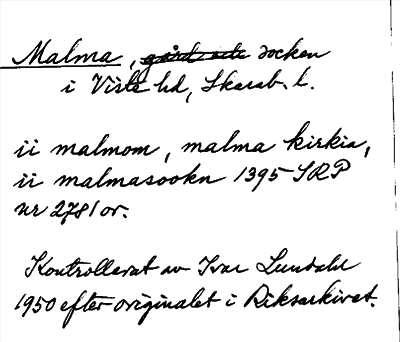 Malma, gård och socken
i Viste hd, Skarab. l.
ii malmom, malma kirkia,
ii malmasookn 1395 SRP
nr 2781 or.
Kontrollerat av Ivar Lundahl
1950 efter originalet i Riksarkivet.